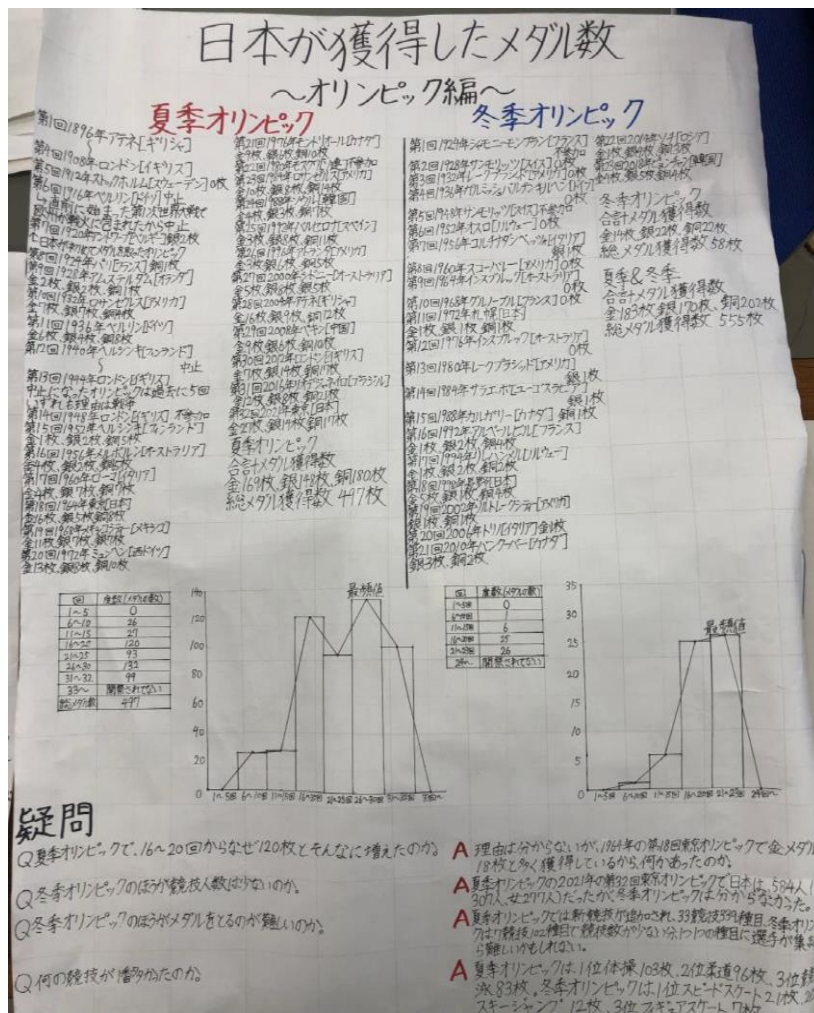 日本が獲得したメダル数
～オリンピック編～
夏季オリンピック
第1回1896年アテネ[ギリシャ]
～
第4回1908年ロンドン[イギリス]
第5回1912年ストックホルム[スウェーデン]0枚
第6回1916年ベルリン[ドイツ]中止
第7回1920年アントワープ[ベルギー]銀2枚
第8回1924年パリ[フランス]銅1枚
第9回1928年アムステルダム[オランダ]
金2枚、銀2枚、銅1枚
第10回1932年ロサンゼルス[アメリカ]
金7枚、銀7枚、銅4枚
第11回1936年ベルリン[ドイツ]
金6枚、銀4枚、銅8枚
第12回1940年ヘルシンキ[フィンランド]
～ 中止
第13回1944年ロンドン[イギリス]
中止になったオリンピックは過去に5回
いずれも理由は戦争
第14回1948年ロンドン[イギリス] 不参加
第15回1952年ヘルシンキ[フィンランド]
金1枚、銀2枚、銅5枚
第16回1956年メルボルン[オーストラリア]
第17回1960年ローマ[イタリア]
金4枚、銀7枚、銅7枚
第18回1964年東京[日本]
金16枚、銀5枚、銅8枚
第19回1968年メキシコシティー[メキシコ]
金11枚、銀7枚、銅7枚
第20回1972年ミュンヘン[西ドイツ]
金13枚、銀8枚、銅10枚
第21回1976年モントリオール[カナダ]
金9枚、銀6枚、銅10枚
第23回1984年ロサンゼルス[アメリカ]
金10枚、銀8枚、銅14枚
第24回1988年ソウル[韓国]
金4枚、銀3枚、銅7枚
第25回1992年バルセロナ[スペイン]
金3枚、銀8枚、銅11枚
第26回1996年アトランタ[アメリカ]
第27回2000年シドニー[オーストラリア]
金5枚、銀8枚、銅5枚
第28回2004年アテネ[ギリシャ]
金16枚、銀9枚、銅12枚
第29回2008年ペキン[中国]
金9枚、銀6枚、銅10枚
第30回2012年ロンドン[イギリス]
金7枚、銀14枚、銅17枚
第31回2016年リオデジャネイロ[ブラジル]
金12枚、銀8枚、銅21枚
第32回2021年東京[日本]
金27枚、銀14枚、銅17枚
夏季オリンピック
合計メダル獲得数
金169枚、銀148枚、銅180枚
総メダル獲得数 497枚
冬季オリンピック
第1回1924年シャモニーモンブラン[フランス]
不参加
第2回1928年サンモリッツ[スイス]0枚
第3回1932年レークプラシッド[アメリカ]0枚
第4回1936年ガルミッシュパルテンキルヘン[ドイツ]
0枚
第5回1948年サンモリッツ[スイス]不参加
第6回1952年オスロ[ノルウェー]0枚
第7回1956年コルチナダンペッツォ[イタリア]
銀1枚
第8回1960年スコーバレー[アメリカ]0枚
第9回1964年インスブルック[オーストリア]
0枚
第10回1968年グルノーブル[フランス]0枚
第11回1972年札幌[日本]
金1枚、銀1枚、銅1枚
第12回1976年インスブルック[オーストリア]
0枚
第13回1980年レークプラシッド[アメリカ]
銀1枚
第14回1984年サラエボ[ユーゴスラビア]
銀1枚
第15回1988年カルガリー[カナダ]銅1枚
第16回1992年アルベールビル[フランス]
金1枚、銀2枚、銅4枚
第17回1994年リレハンメル[ノルウェー]
金1枚、銀2枚、銅2枚
第18回1998年長野[日本]
金5枚、銀1枚、銅4枚
第19回2002年ソルトレークシティー[アメリカ]
銀1枚、銅1枚
第20回2006年トリノ[イタリア]金1枚
第21回2010年バンクーバー[カナダ]
銀3枚、銅2枚
第22回2014年ソチ[ロシア]
金1枚、銀4枚、銅3枚
第23回2018年ピョンチャン[韓国]
金4枚、銀5枚、銅4枚
冬季オリンピック
合計メダル獲得数
金14枚、銀22枚、銅22枚
総メダル獲得数58枚
夏季&冬季
合計メダル獲得数
金183枚、銀170枚、銅202枚
総メダル獲得数 555枚
回 度数(メダルの数)
1～5 0
6～10 26
11～15 27
16～20 120
21～25 93
26～30 132
31～32 99
33～ 開祭されてない
総メダル数 497
140
最頻値
120
100
80
60
40
20
0
1～5回 6～10回 11～15回 16～20回 21～25回 26～30回 31～32回 33回～
回 度数(メダルの数)
1～5回 0
6～10回 1
11～15回 6
16～20回 25
21～23回 26
24～ 開祭されてない
35
30
最頻値
25
20
15
10
5
0
1～5回 6～10回 11～15回 16～20回 21～23回 24回～
疑問
Q夏季オリンピックで、16～20回からなぜ120枚とそんなに増えたのか。
A 理由は分からないが、1964年の第18回東京オリンピックで金メダル
18枚と多く獲得しているから、何かあったのか。
Q冬季オリンピックのほうが競技人数は少ないのか。
A夏季オリンピックの2021年の第32回東京オリンピックで日本は、584人(
307人、女277人)だったが、冬季オリンピックは分からなかった。
Q冬季オリンピックのほうがメダルをとるのが難しいのか。
A夏季オリンピックでは新競技が追加され、33競技339種目、冬季オリン
クは7競技102種目で競技数が少ない分1つ1つの種目に選手が集
ら難しいかもしれない。
Q何の競技が1番多かったのか。
A 夏季オリンピックは、1位体操103枚、2位柔道96枚、3位競
泳83枚。冬季オリンピックは1位スピードスケート21枚、2
スキージャンプ12枚、3位フィギュアスケート7枚